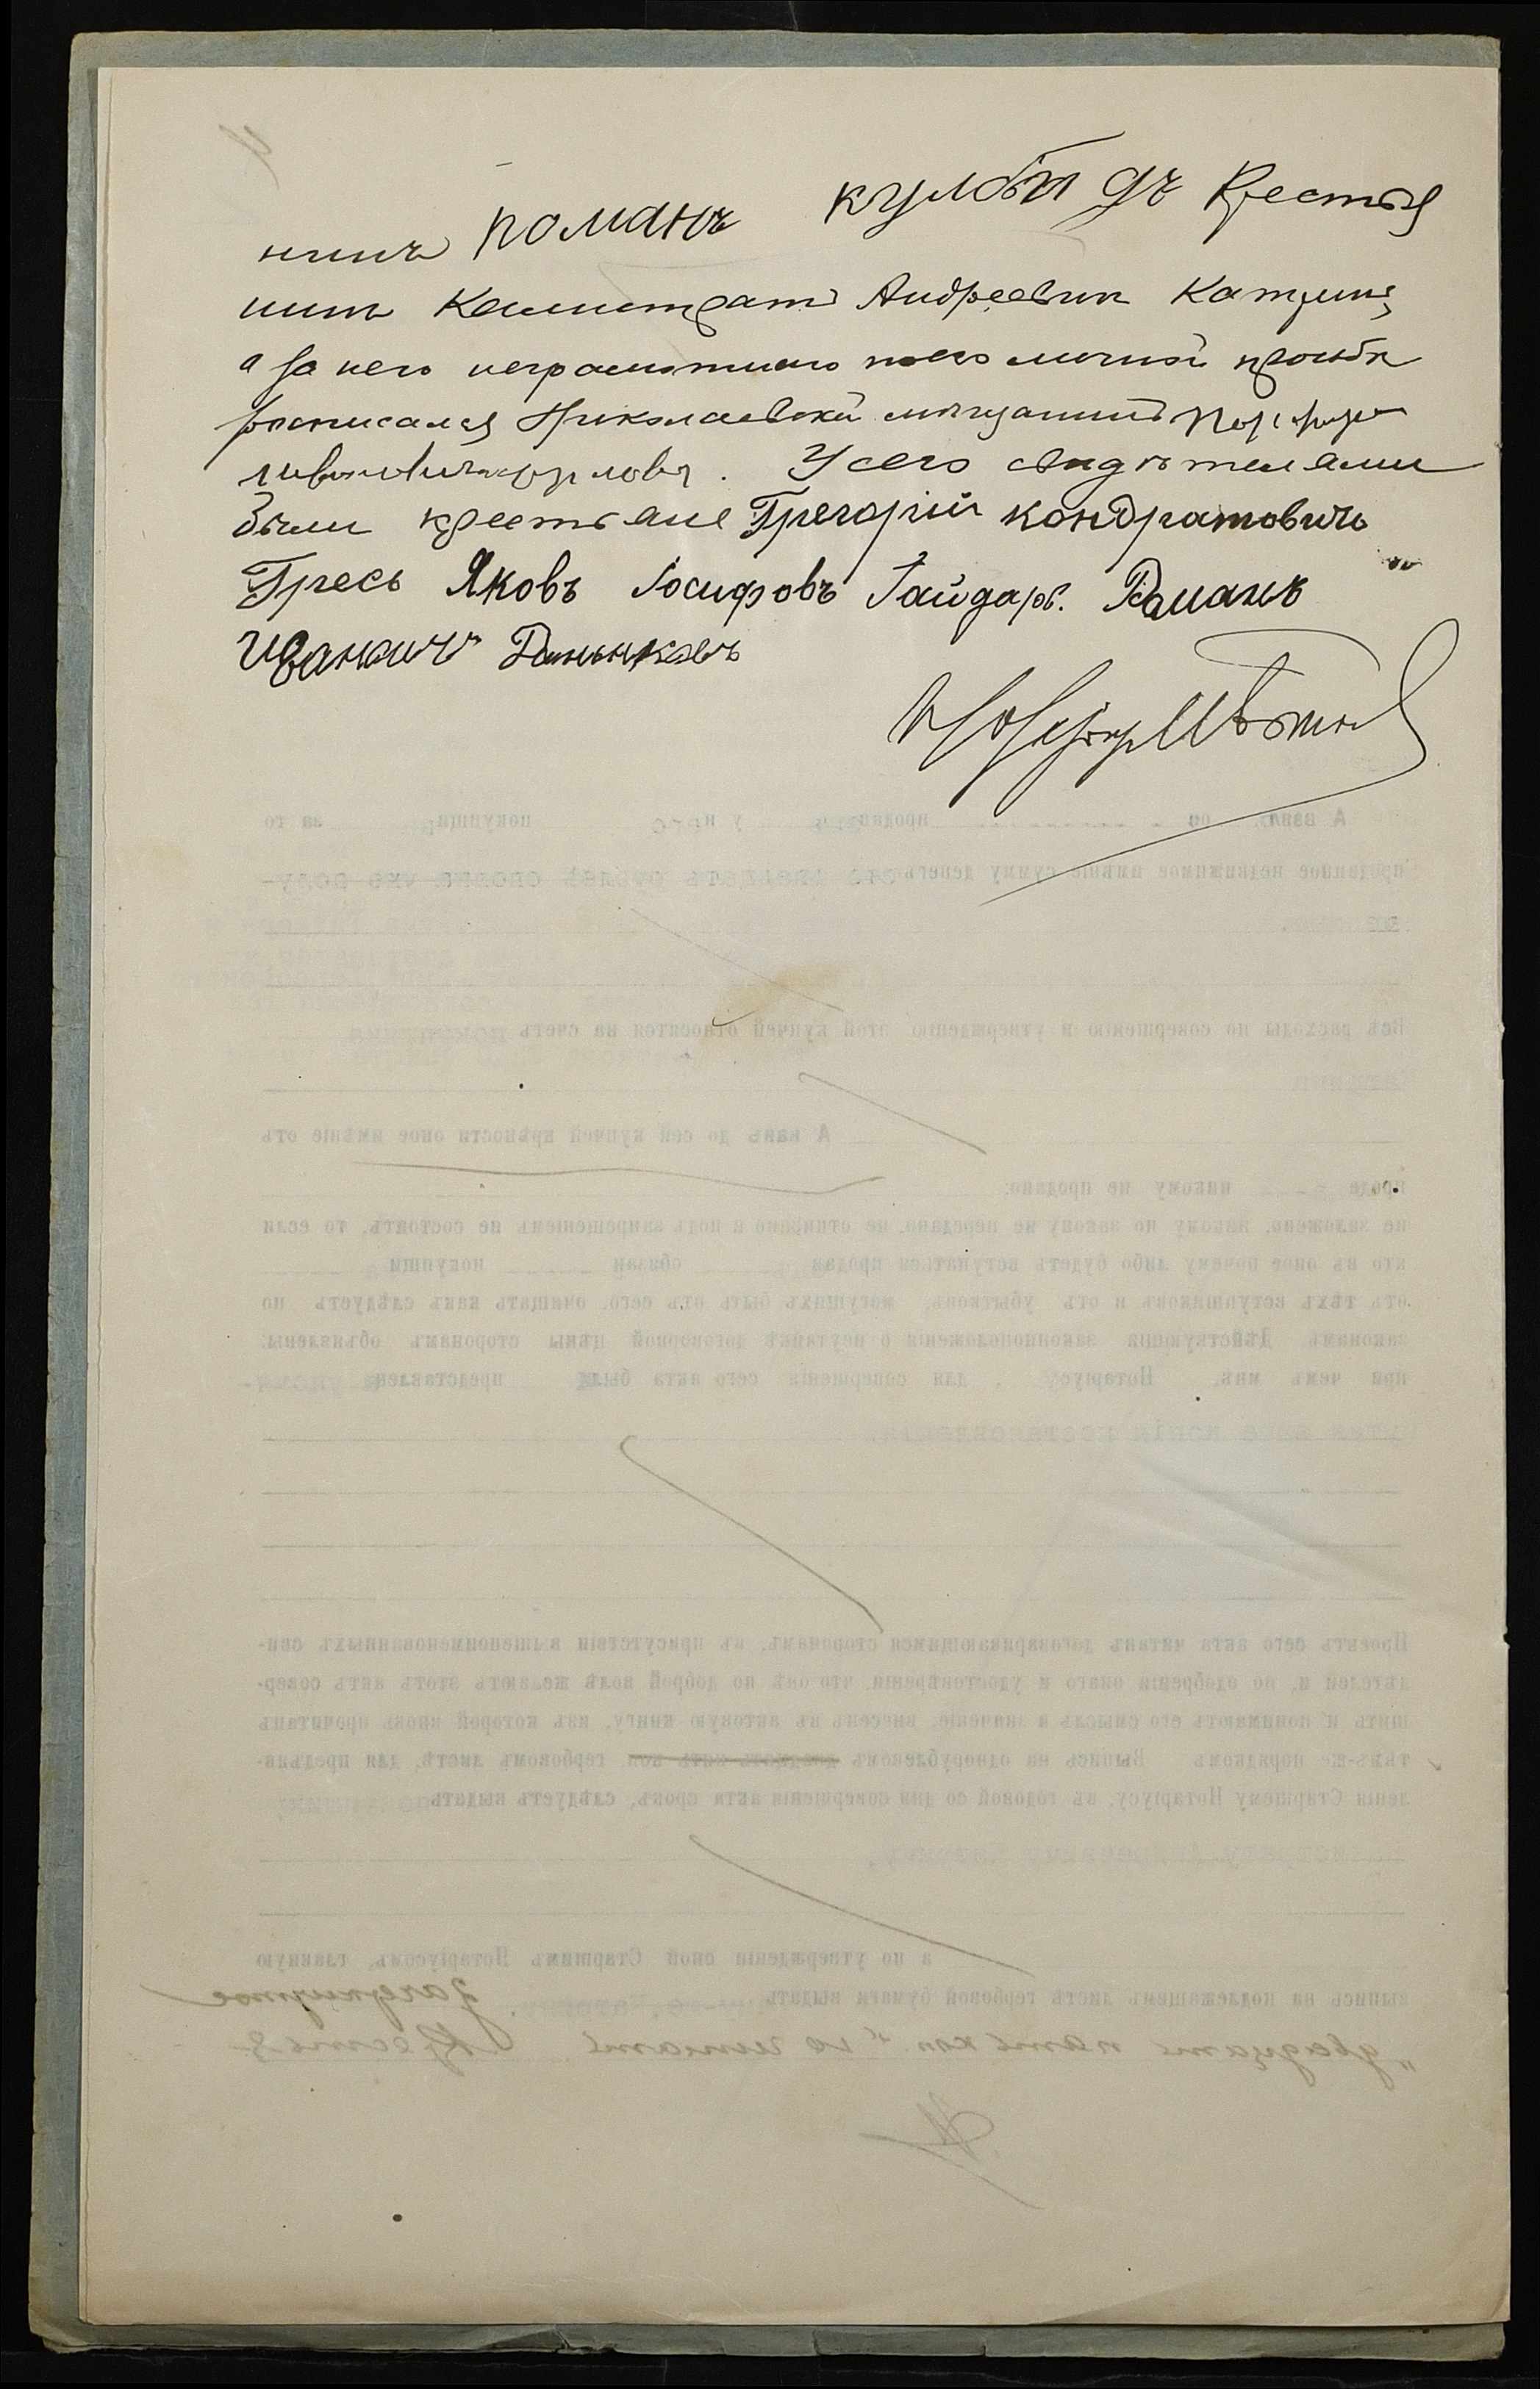 нинъ Романъ Кулбидъ Крестья
нинъ Калистратъ Андреевичъ Катунъ
а за него неграмотнаго по его личной просьбѣ
росписался Николаевскій мѣщанинъ Порфирій
У сего свидѣтелями
были крестьяне Григорій Кондратовичъ
Гресь Яковъ Іосифовъ Гайдарь. Романъ
Ивановичъ
Нотаріусъ
А взялъ он продавецъ у него покупщик за то
проданное недвижимое имѣніе сумму денегъ сто двадцать рублей сполна уже полу-
Всѣ расходы по совершенію и утвержденію этой купчей относятся на счетъ
А какъ до сей купчей крѣпости оное имѣніе отъ
никому не продано,
не заложено, никому по закону не передано, не отписано и подъ запрещеніемъ не состоитъ, то если
кто въ оное почему либо будетъ вступаться продав обязан покупщи
отъ тѣхъ вступщиковъ и отъ убытковъ, могущихъ быть отъ сего, очищать какъ слѣдуетъ по
законамъ. Дѣйствующія законоположенія о неутайкѣ договорной цѣны сторонамъ объявлены,
при чемъ мнѣ, Нотаріусу, для совершенія сего акта были представлен
Проектъ сего акта читанъ договаривающимся сторонамъ, въ присутствіи вышепоименованныхъ сви-
дѣтелей и, по одобреніи онаго и удостовѣреніи, что онѣ по доброй волѣ желаютъ этотъ актъ совер-
шить и понимаютъ его смыслъ и значеніе, внесенъ въ актовую книгу, изъ которой вновь прочитанъ
тѣмъ-же порядкомъ. Выпись на однорублевомъ двадцать пять коп. гербовомъ листѣ, для предъяв-
ленія Старшему Нотаріусу, въ годовой со дня совершенія акта срокъ, слѣдуетъ выдать
а по утвержденіи оной Старшимъ Нотаріусомъ, главную
выпись на надлежащемъ листѣ гербовой бумаги выдать Зачеркнутое
„двадцать пять коп." не читать. Крестья-